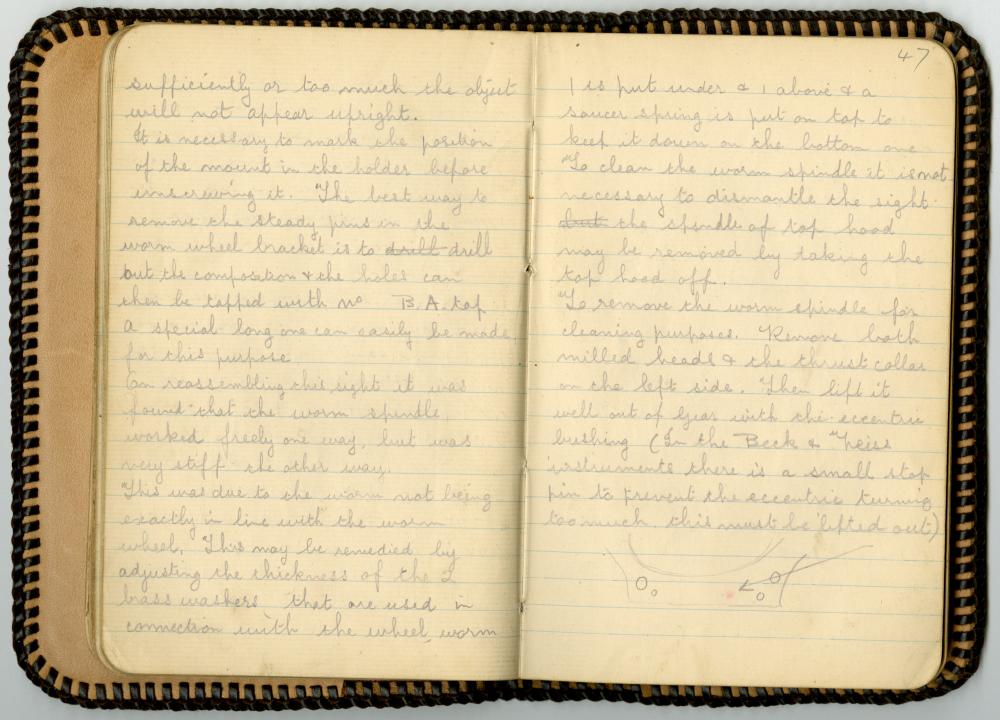 sufficiently or too much the object
will not appear upright.
It is necessary to mark the position
of the mount in the holder before
unscrewing it. The best way to
remove the steady pins in the
worm wheel bracket is to drill drill
out the composition & the holes can
then be tapped with no B.A. tap
a special long one can easily be made
for this purpose
On reassembling this sight it was
found that the worm spindle
worked freely one way, but was
very stiff the other way.
This was due to the worm not being
exactly in line with the worm
wheel. This may be remedied by
adjusting the thickness of the 2
brass washers that are used in
connection with the wheel worm
47
1 is put under & 1 above & a
saucer spring is put on top to
keep it down on the bottom one
To clean the worm spindle it is not
necessary to dismantle the sight.
but the spindle of top hood
may be removed by taking the
top hood off.
To remove the worm spindle for
cleaning purposes. Remove both
milled heads & the thrust collar
on the left side. Then lift it
well out of gear with the eccentric
bushing (In the Beck & Zeiss
instruments there is a small stop
pin to prevent the eccentric turning
too much, this must be lifted out)